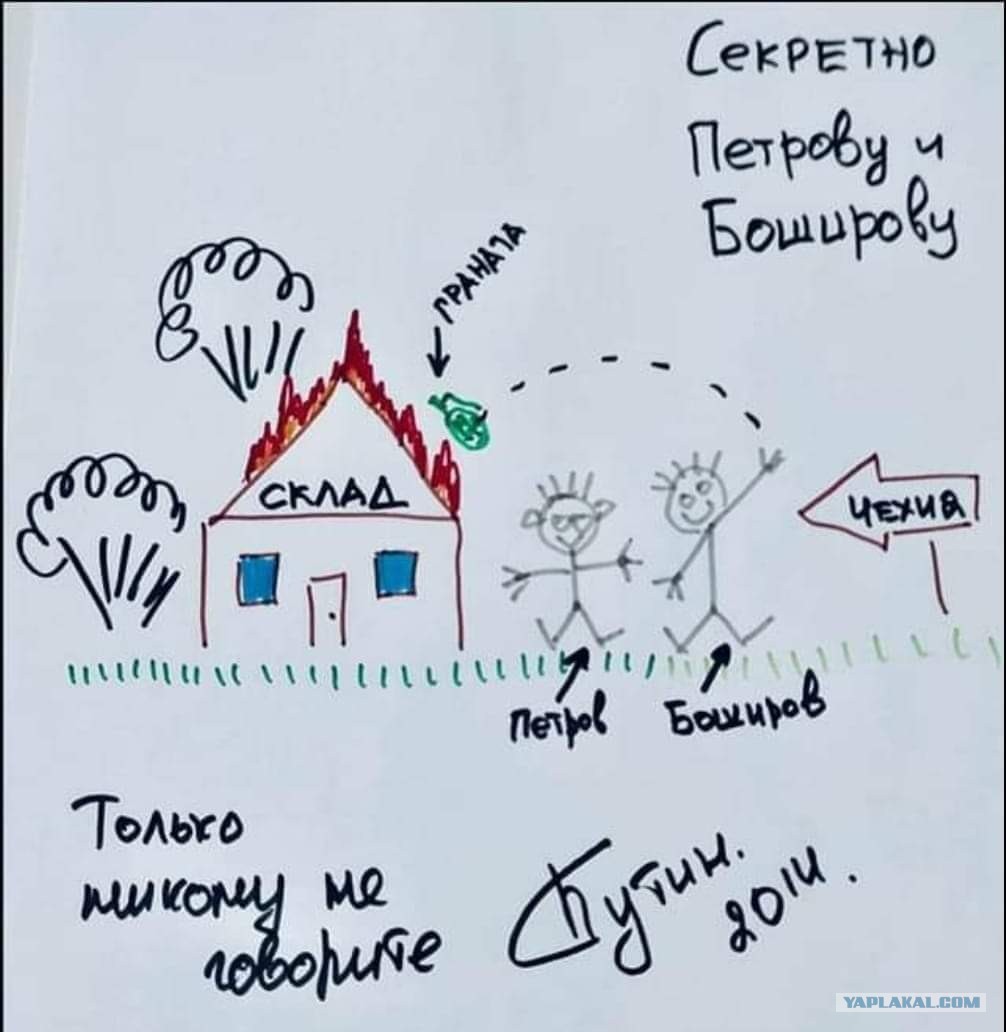 Секретно
Петрову и
Боширову
граната
склад
Чехия
Петров
Боширов
Только
никому не
говорите
Путин.
2014.
YAPLAKAL.COM